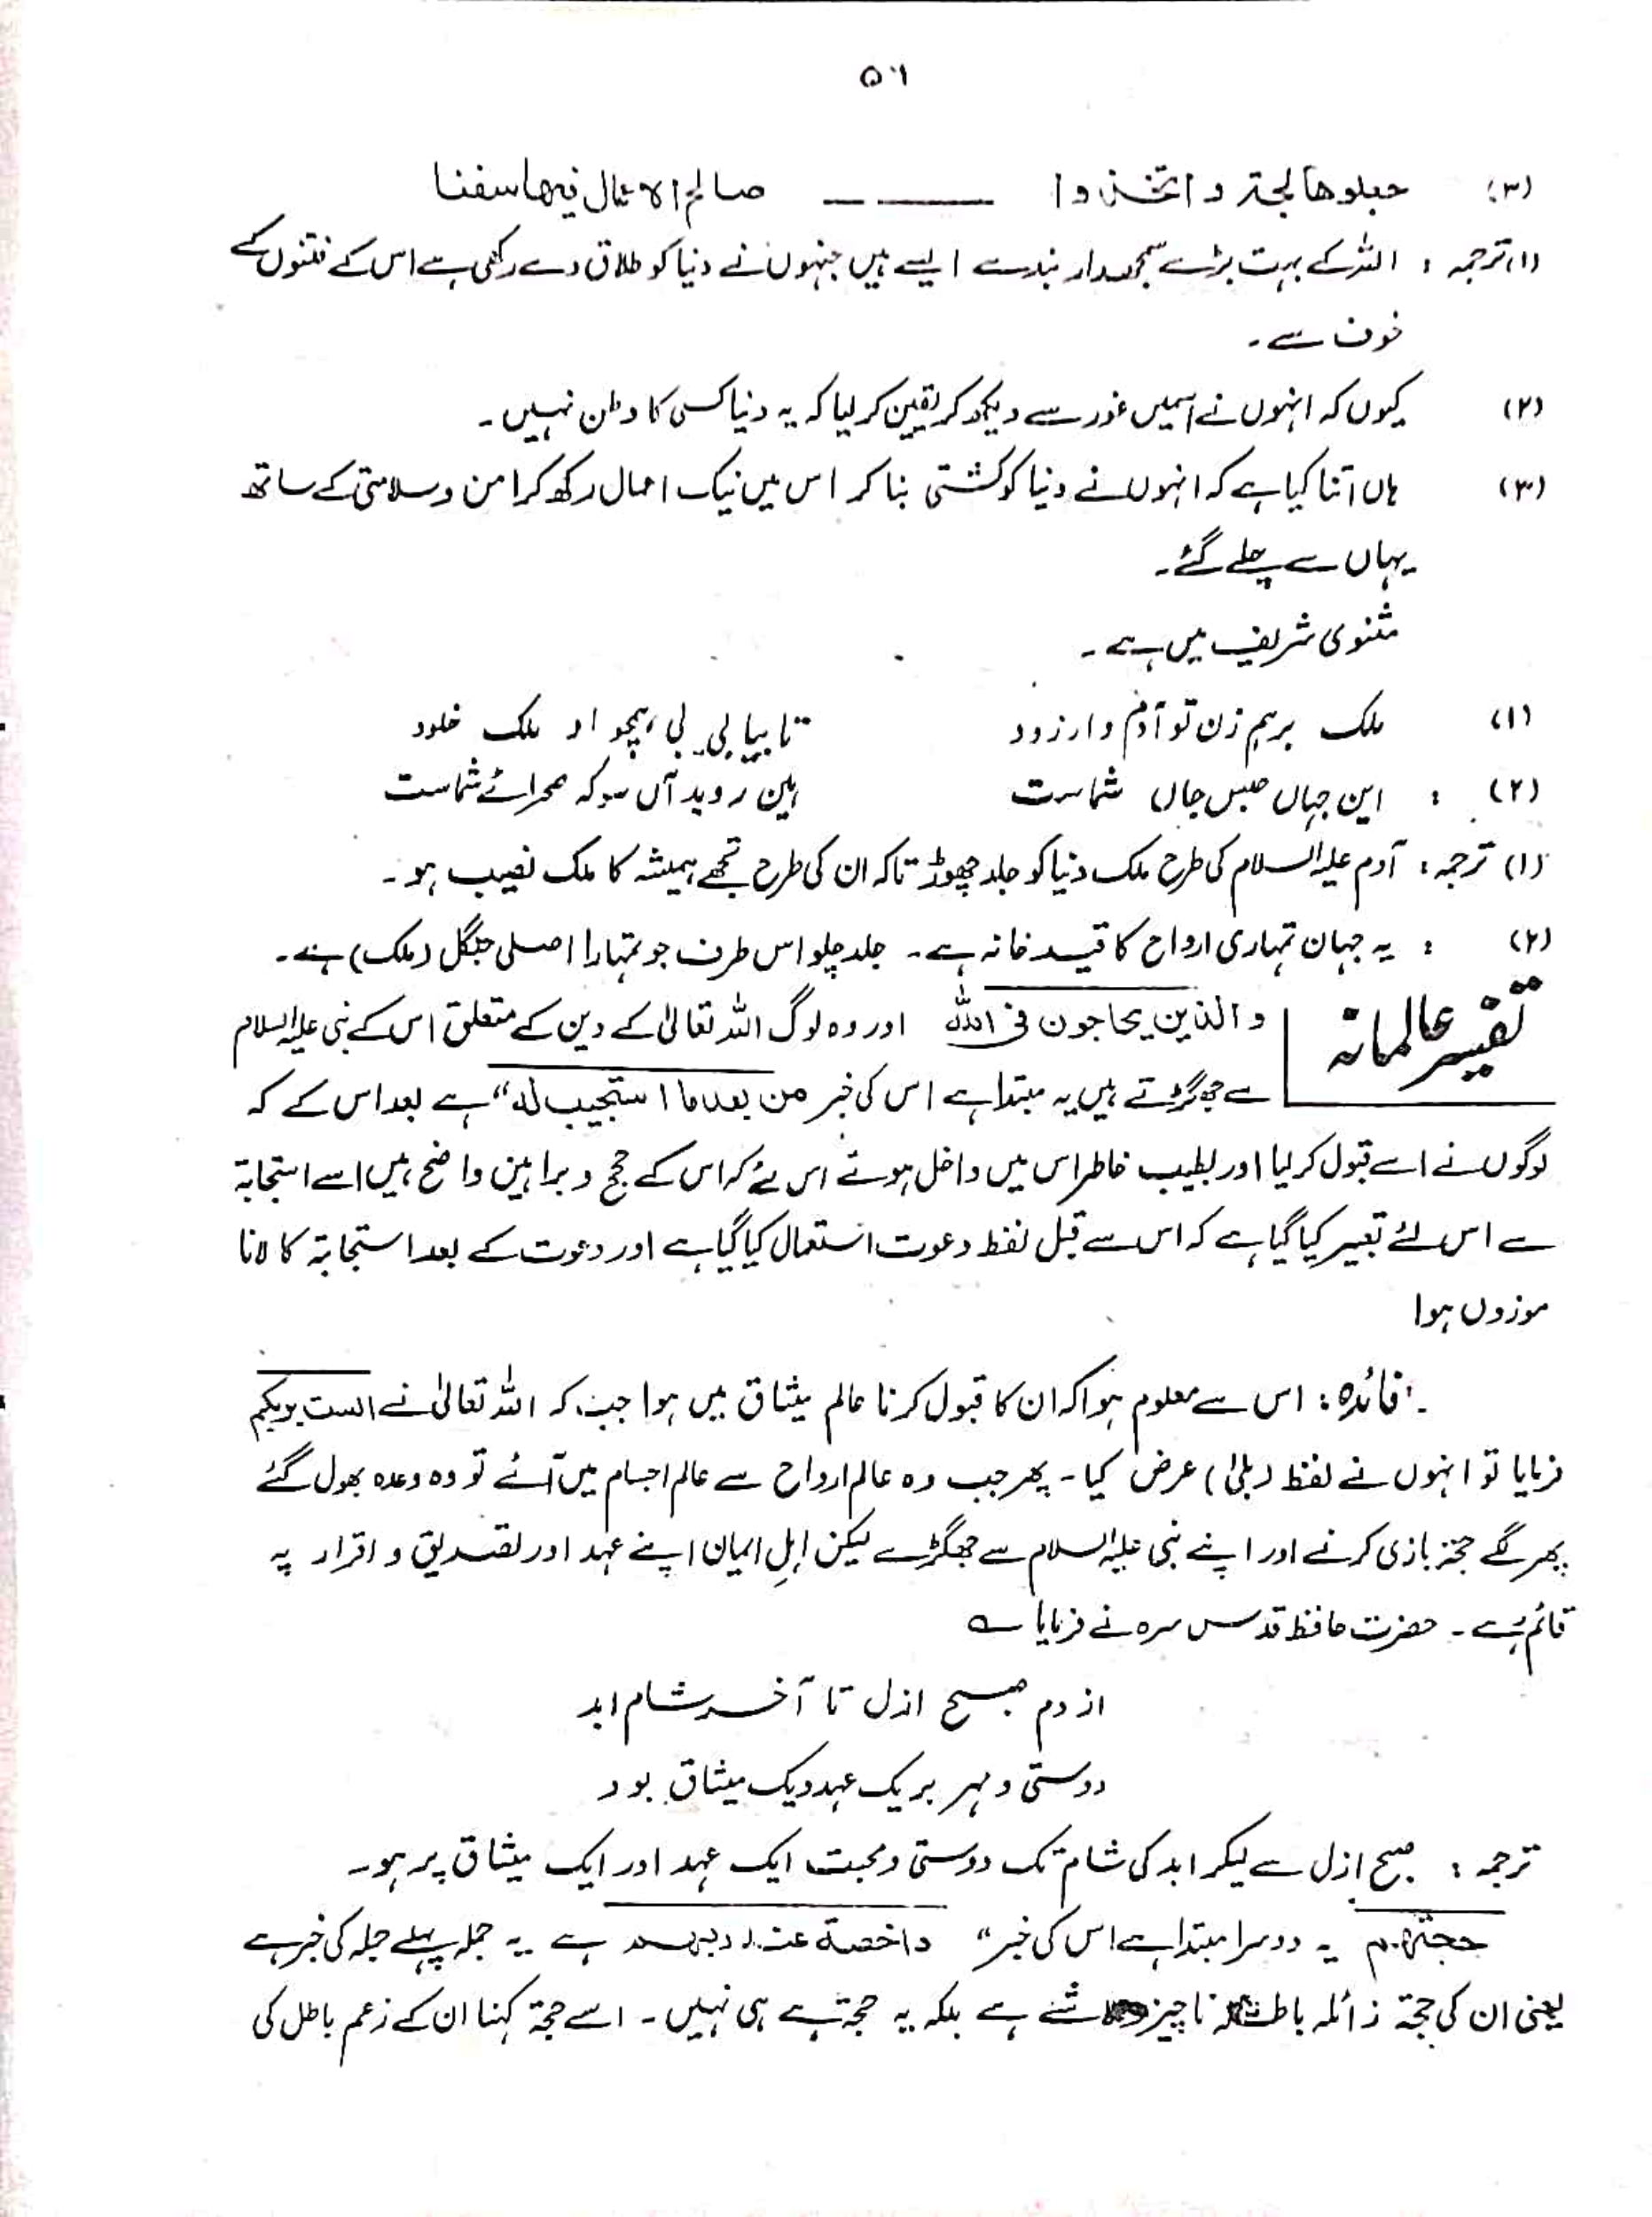 ٥٦
(٣) جعلوها لجة واتخذوا ـــــ صالح الاعمال فيها سفنا
(۱) ترجمہ : اللہ کے بہت بڑے سمجھدار بندے ایسے ہیں جنہوں نے دنیا کو طلاق دے رکھی ہے اس کے فتنوں کے
خوف سے ۔
(۲) کیوں کہ انہوں نے اسمیں غور سے دیکھ کر یقین کر لیا کہ یہ دنیا کسی کا وطن نہیں ۔
(۳) ہاں اتنا کیا ہے کہ انہوں نے دنیا کو کشتی بنا کر اس میں نیک اعمال رکھ کر امن وسلامتی کے ساتھ
یہاں سے چلے گئے ۔
مثنوی شریف میں ہے ۔
(۱) ملک برہم زن تو آدم وار زود تا بیابی ہمچو او ملک خلود
(۲) : این جہاں حبس جاں شماست ہین روید آں سو کہ صحرائے شماست
(۱) ترجمہ : آدم علیہ السلام کی طرح ملک دنیا کو جلد چھوڑ تاکہ ان کی طرح تجھے ہمیشہ کا ملک نصیب ہو ۔
(۲) : یہ جہان تمہاری ارواح کا قید خانہ ہے ۔ جلد چلو اس طرف جو تمہارا اصلی جنگل (ملک) ہے ۔
تفسیر عالمانہ
والذین یحاجون فی اللہ اور وہ لوگ اللہ تعالیٰ کے دین کے متعلق اس کے نبی علیہ السلام
سے جھگڑتے ہیں یہ مبتدا ہے اس کی خبر من بعد ما استجیب لہ“ ہے بعد اس کے کہ
لوگوں نے اسے قبول کر لیا اور بطیب خاطر اس میں داخل ہوئے اس لئے کہ اس کے حجج و براہین واضح ہیں اسے استجابۃ
سے اس لئے تعبیر کیا گیا ہے کہ اس سے قبل لفظ دعوت استعمال کیا گیا ہے اور دعوت کے بعد استجابۃ کا لانا
موزوں ہوا
فائدہ : اس سے معلوم ہوا کہ ان کا قبول کرنا عالم میثاق میں ہوا جب کہ اللہ تعالیٰ نے الست بربکم
فرمایا تو انہوں نے لفظ (بلیٰ) عرض کیا ۔ پھر جب وہ عالم ارواح سے عالم اجسام میں آئے تو وہ وعدہ بھول گئے
پھر لگے حجۃ بازی کرنے اور اپنے نبی علیہ السلام سے جھگڑے لیکن اہل ایمان اپنے عہد اور تصدیق و اقرار پہ
قائم رہے ۔ حضرت حافظ قدس سرہ نے فرمایا ؎
از دم صبح ازل تا آخر شام ابد
دوستی و مہر بریک عہد ویک میثاق بود
ترجمہ : صبح ازل سے لیکر ابد کی شام تک دوستی و محبت ایک عہد اور ایک میثاق پر ہو ۔
حجتھم یہ دوسرا مبتدا ہے اس کی خبر “ داحضۃ عند ربھم ہے یہ جملہ پہلے جملہ کی خبر ہے
یعنی ان کی حجۃ زائلہ باطلہ ناچیز شے ہے بلکہ یہ حجۃ ہے ہی نہیں ۔ اسے حجۃ کہنا ان کے زعم باطل کی